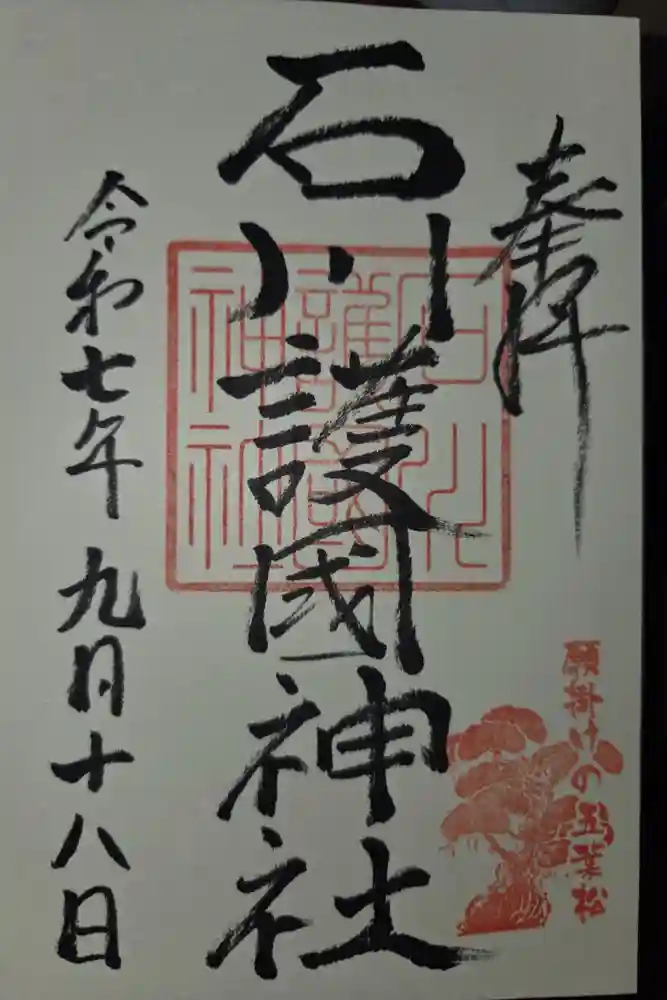 奉拝
石川護國神社
石川
護國
神社
願掛けの五葉松
令和七年九月十八日